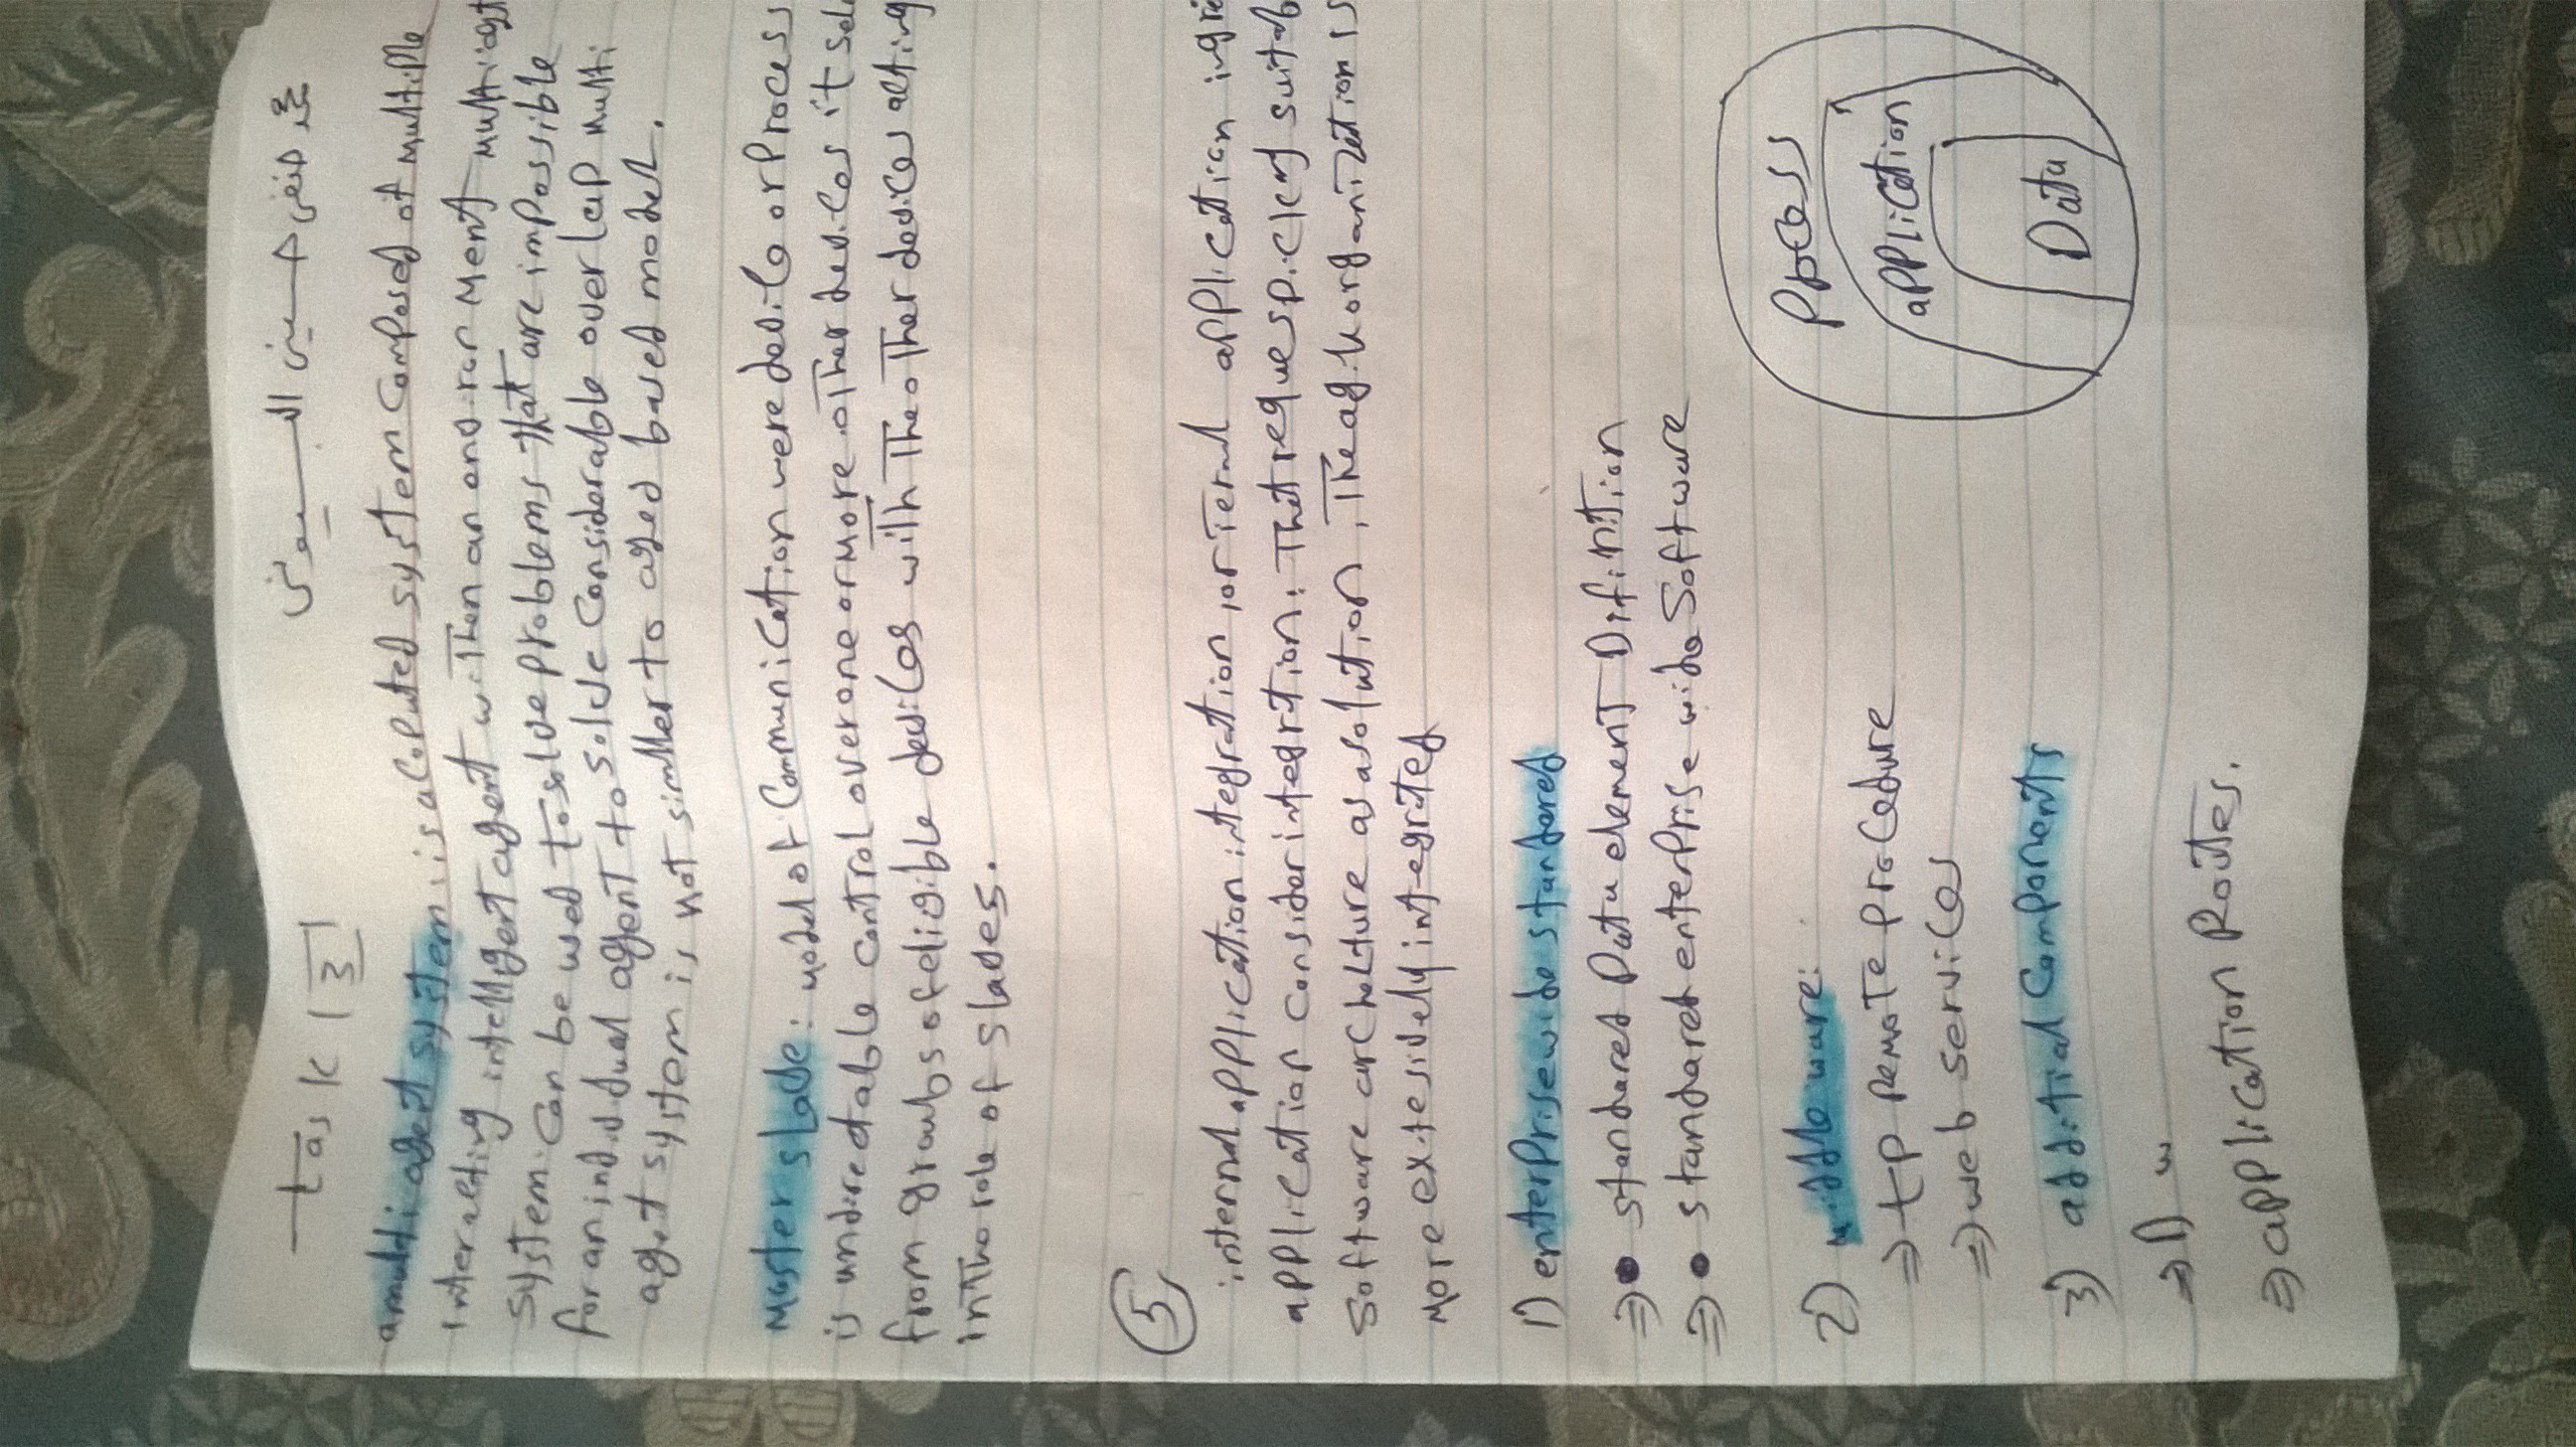 task 3
محمد حنفى حسينى البسيونى
a multi agent system: is a coputed system composed of multiple
interacting intelligent agent within an environment multi agt
system can be used to solve problems that are impossible
for an individual agent to solve considerable overlap multi
aget system is not simller to based model.
Master slave: model of communication were device or process
is undirectable control over one or more other devices it sel
from groubs of eligible devices with the other devices acting
in the role of slaves.
5
internal application integration application
application consider integrtion: that suitab
software as a solution, The organization is
more extesively integrated
1) enterprise wide standared
⇒• standared Data element Difinition
⇒• standared enterprise wide Software
2) middle ware:
⇒ tp Remote procedure
⇒ web services
3) additial Components
⇒ D w
⇒ application Routes.
Process
application
Data